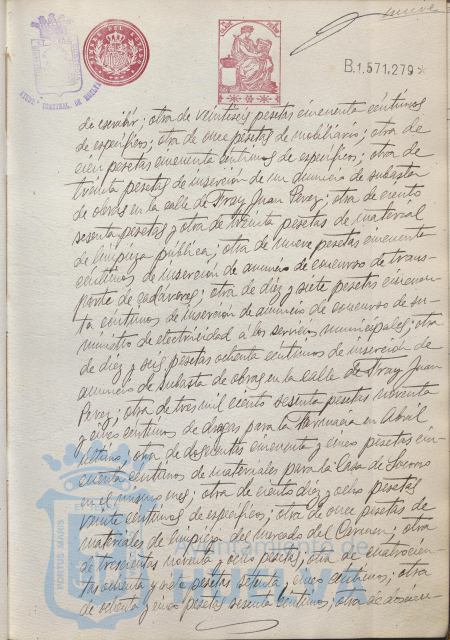 nueve
B.1.571.279
AYUNTº CONSTNAL. DE HUELVA
TIMBRE DEL ESTADO
de escribir; otra de veintiseis pesetas cincuenta céntimos
de específicos; otra de once pesetas de mobiliario; otra de
cien pesetas cincuenta centimos de específicos; otra de
treinta pesetas de inserción de un anuncio de subasta
de obras en la calle de Fray Juan Perez; otra de ciento
sesenta pesetas y otra de treinta pesetas de material
de limpieza pública; otra de nueve pesetas cincuenta
centimos de inserción de anuncio de concurso de trans-
porte de cadáveres; otra de diez y siete pesetas cincuen-
ta céntimos de inserción de anuncio de concurso de su-
ministro de electricidad á los servicios municipales; otra
de diez y seis pesetas ochenta centimos de inserción de
anuncio de subasta de obras en la calle de Fray Juan
Perez; otra de tres mil ciento sesenta pesetas noventa
y cinco centimos de drogas para la Farmacia en Abril
último; otra de doscientas cincuenta y cinco pesetas cin-
cuenta centimos de materiales para la Casa de Socorro
en el mismo mes; otra de ciento diez y ocho pesetas
veinte centimos de específicos; otra de once pesetas de
materiales de limpieza del mercado del Carmen; otra
de trescientas noventa y ocho pesetas; otra de cuatrocien-
tas ochenta y pesetas setenta y cinco centimos; otra
de ochenta y cinco pesetas sesenta centimos; otra de doscien-
PORTUS MARIS
Ayuntamiento de
HUELVA